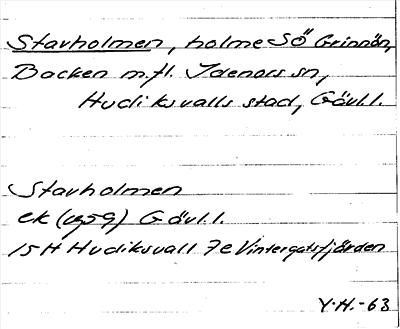 Stavholmen, holme SÖ Grinnön,
Backen m.fl. Idenors sn,
Hudiksvalls stad, Gävl.l.
Stavholmen
ek (0959) Gävl.l.
15H Hudiksvall 7e Vintergatsfjärden
Y.H.-63